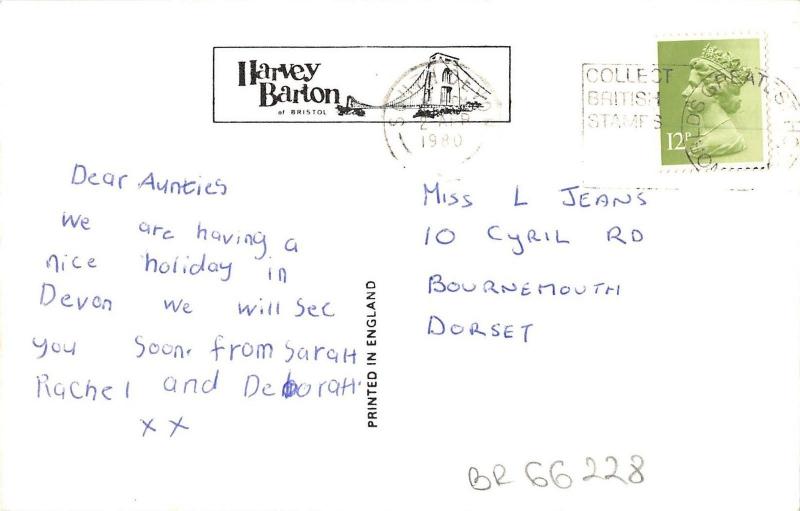 Harvey
Barton
of BRISTOL
2 APR
1980
COLLECT
BRITISH
STAMPS
12P
Dear Aunties
we are having a
nice holiday in
Devon we will see
you soon. from Sarah
Rachel and Deborah.
x x
PRINTED IN ENGLAND
MISS L JEANS
10 CYRIL RD
BOURNEMOUTH
DORSET
BR66228